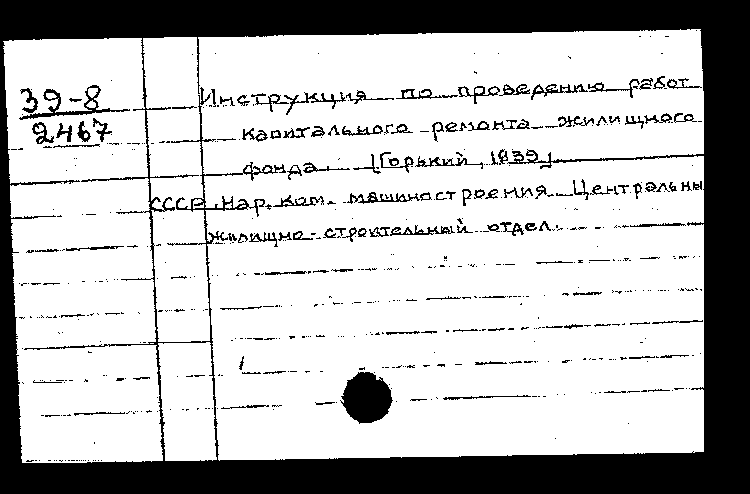 39-8
2467
Инструкция по проведению работ
капитального ремонта жилищного
фонда. [Горький, 1939]
СССР. Нар. ком. машиностроения. Центральны
жилищно-строительный отдел.